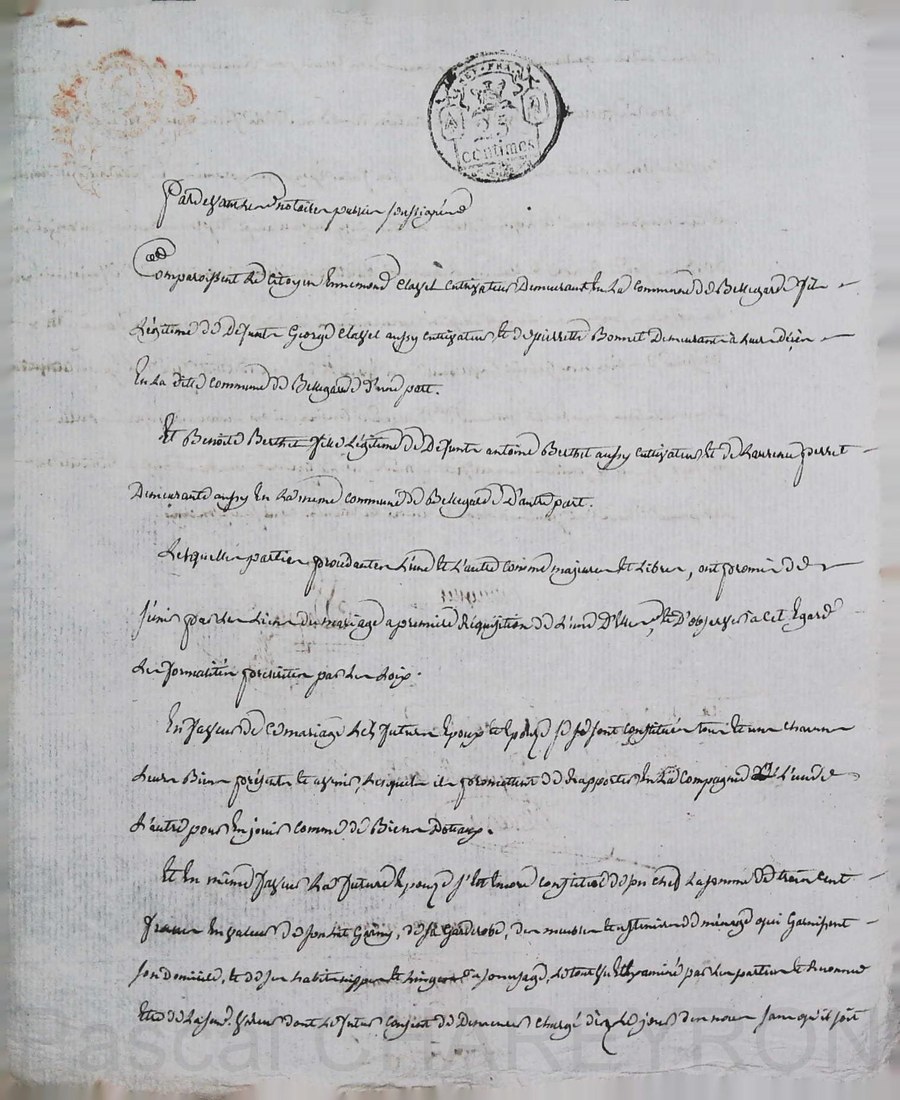 REP. FRA.
25
centimes
Pardevant les notaires publics soussignés
Comparoissent le Citoyen Ennemond Clavel cultivateur Demeurant En La Commune de Bellegarde fils
Légitime de Defunts George Clavel aussy cultivateur et de pierrette Bonnet Demeurants à Leurs décès
En La dite commune de Bellegarde d'une part.
Et Benoite Berthet fille Légitime de Defunts antoine Berthet aussy cultivateur et de Laurence perret
Demeurante aussy En La même commune de Bellegarde D'autre part.
Lesquelles parties procédantes L'une et L'autre comme majeures et Libres, ont promis de
s'unir par les Liens du mariage a première Réquisition de L'une D'elles, et D'observer à cet Egard
Les formalités prescrites par les Loix.
En faveur de ce mariage Les futurs Epoux et Epouse se sont constitués tous et uns chacuns
Leurs Biens présents et avenir, Lesquels ils promettent de se rapporter En La Compagnie L'un de
L'autre pour En jouir comme de Biens Dotaux.
Et En même faveur La future Epouse s'est Encore constituée de son chef La somme de trois cent
francs En valeur de son Lit Garny, de sa Garderobe, des meubles et ustenciles de ménage qui Garnissent
son Domicile, et de ses habits et Linges à son usage, Le tout vu et Examiné par les parties et Reconnu
Etre de La susd. valeur dont Le futur consent de Demeurer chargé dès Le jour des noces sans qu'il soit
Pascal CHAREYRON